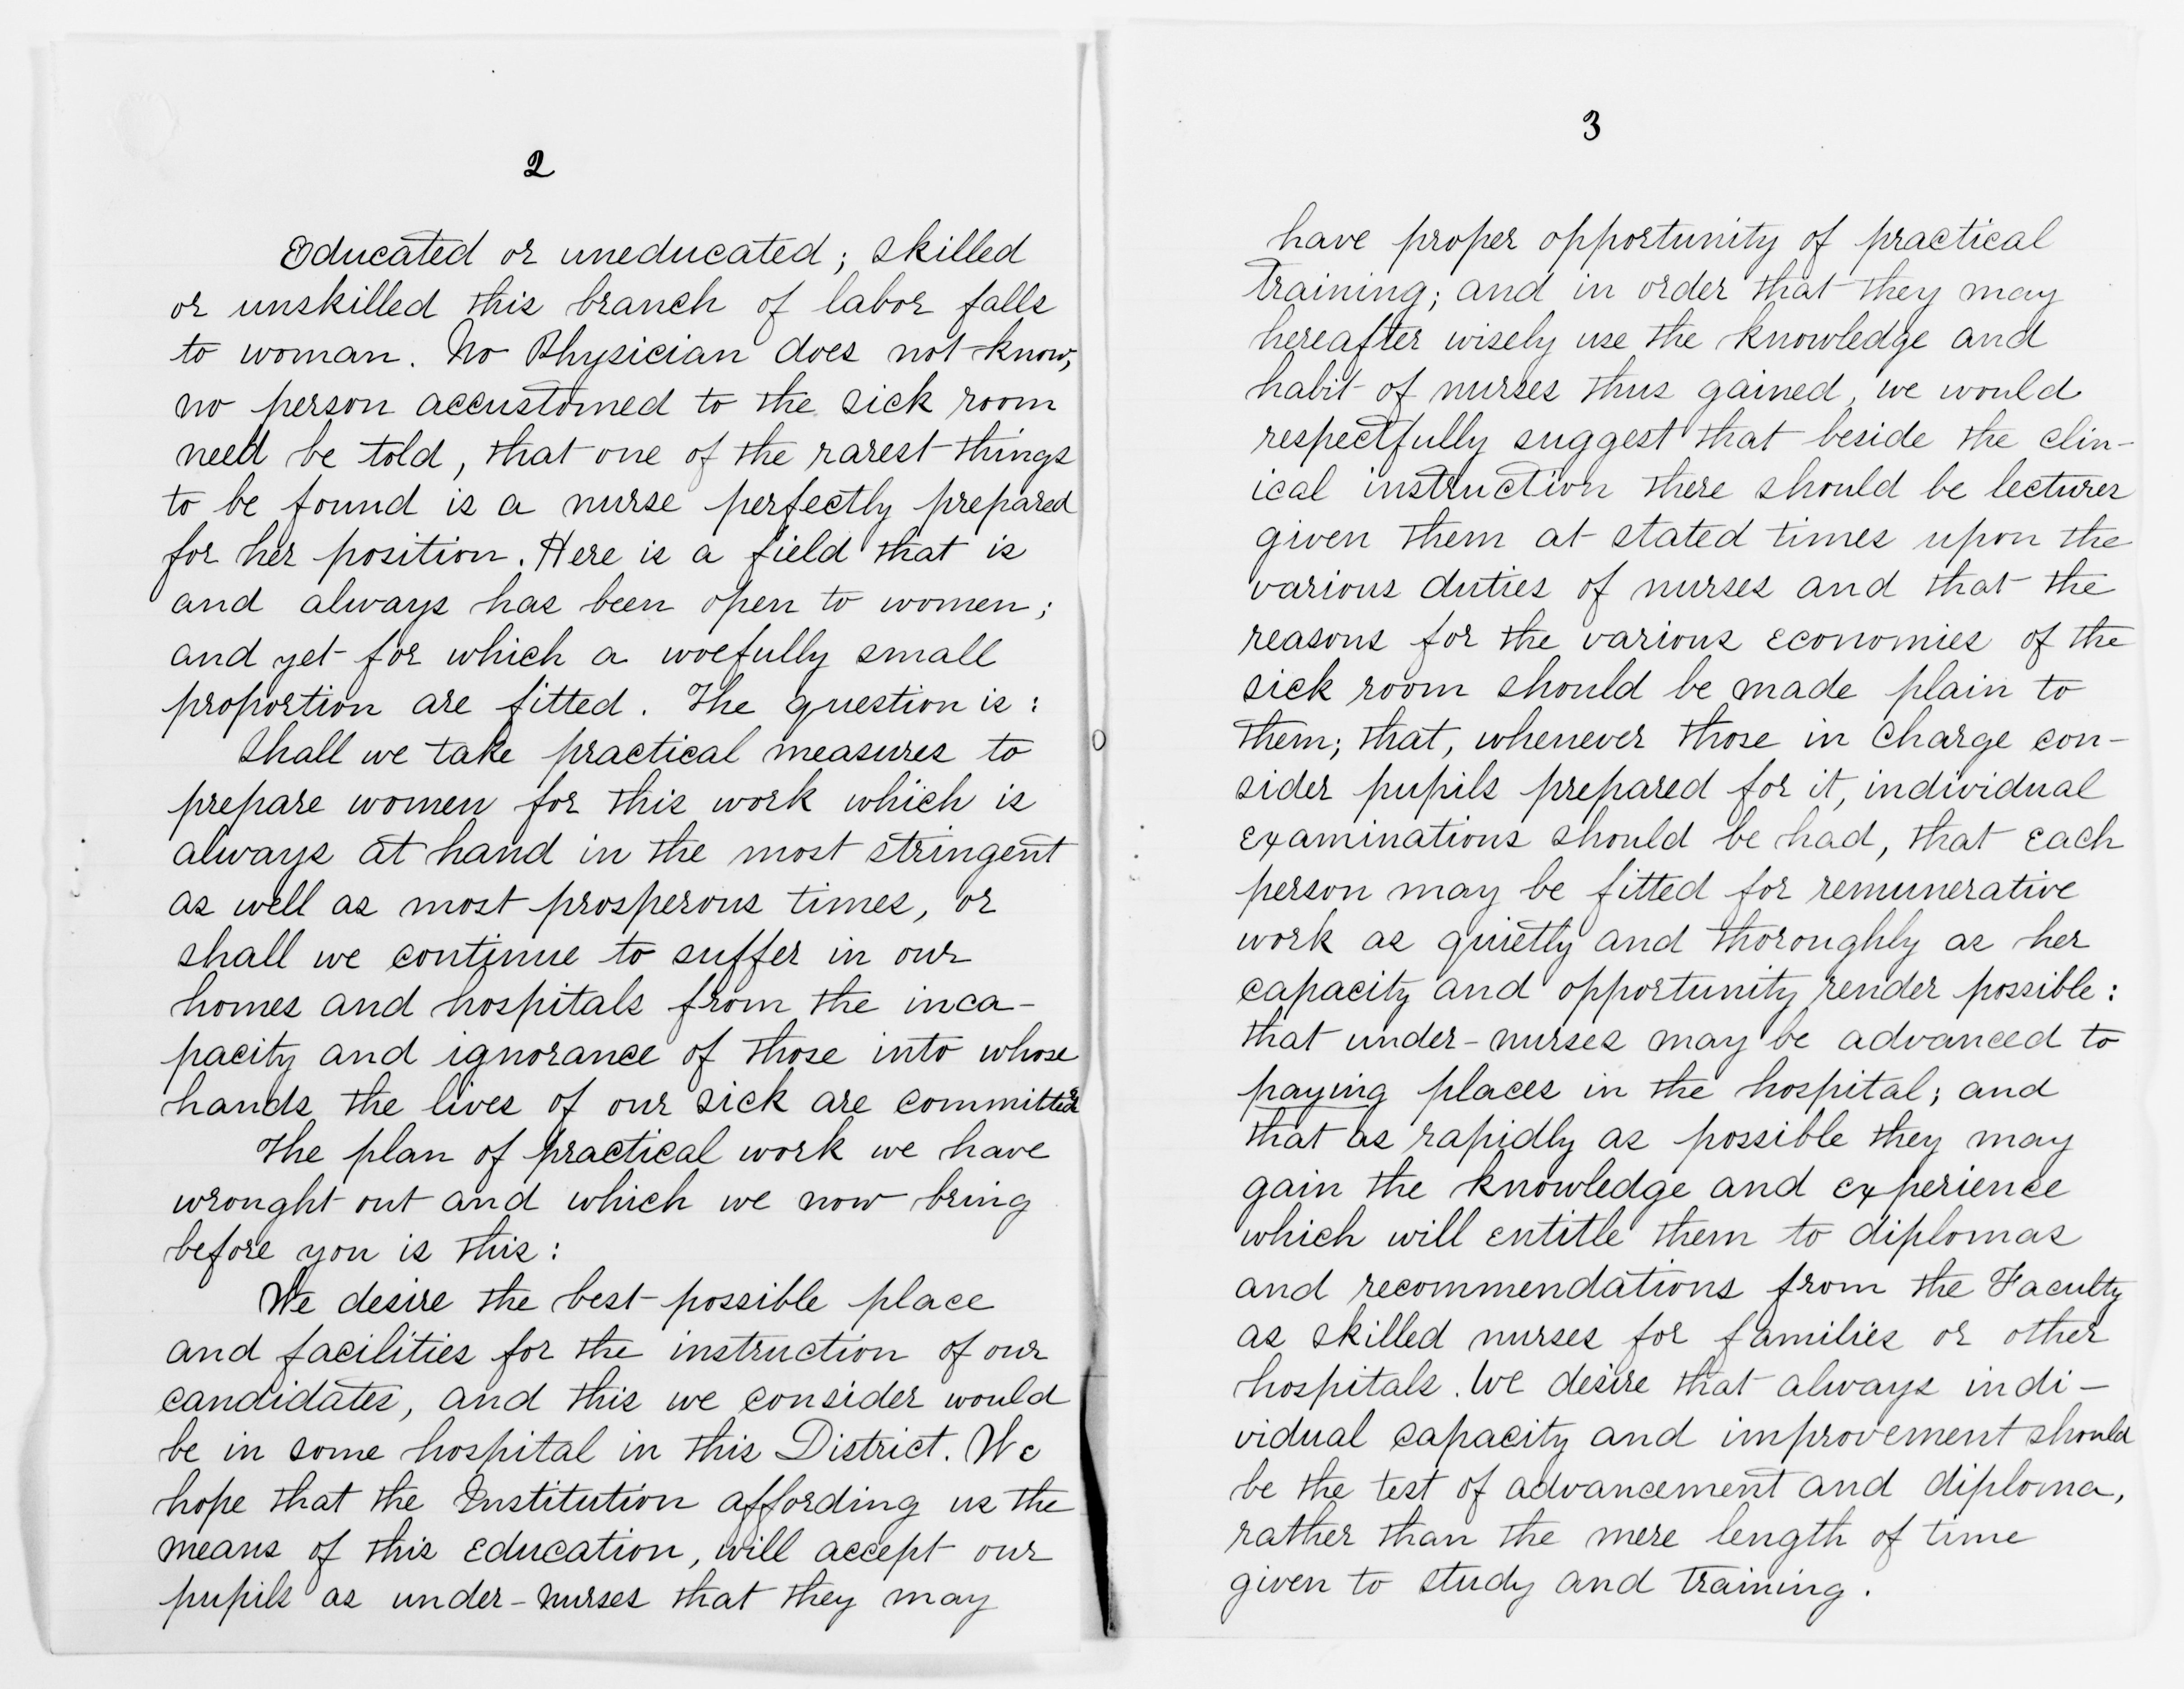 2
Educated or uneducated; skilled
or unskilled this branch of labor falls
to woman. No Physician does not know,
no person accustomed to the sick room
need be told, that one of the rarest things
to be found is a nurse perfectly prepared
for her position. Here is a field that is
and always has been open to women;
and yet for which a woefully small
proportion are fitted. The question is:
Shall we take practical measures to
prepare women for this work which is
always at hand in the most stringent
as well as most prosperous times, or
shall we continue to suffer in our
homes and hospitals from the inca-
pacity and ignorance of those into whose
hands the lives of our sick are committed
The plan of practical work we have
wrought out and which we now bring
before you is this:
We desire the best possible place
and facilities for the instruction of our
candidates, and this we consider would
be in some hospital in this District. We
hope that the Institution affording us the
means of this education, will accept our
pupils as under-nurses that they may
3
have proper opportunity of practical
training; and in order that they may
hereafter wisely use the knowledge and
habit of nurses thus gained, we would
respectfully suggest that beside the clin-
ical instruction there should be lectures
given them at stated times upon the
various duties of nurses and that the
reasons for the various economies of the
sick room should be made plain to
them; that, whenever those in charge con-
sider pupils prepared for it, individual
examinations should be had, that each
person may be fitted for remunerative
work as quietly and thoroughly as her
capacity and opportunity render possible:
that under-nurses may be advanced to
paying places in the hospital; and
that as rapidly as possible they may
gain the knowledge and experience
which will entitle them to diplomas
and recommendations from the Faculty
as skilled nurses for families or other
hospitals. We desire that always indi-
vidual capacity and improvement should
be the test of advancement and diploma,
rather than the mere length of time
given to study and training.